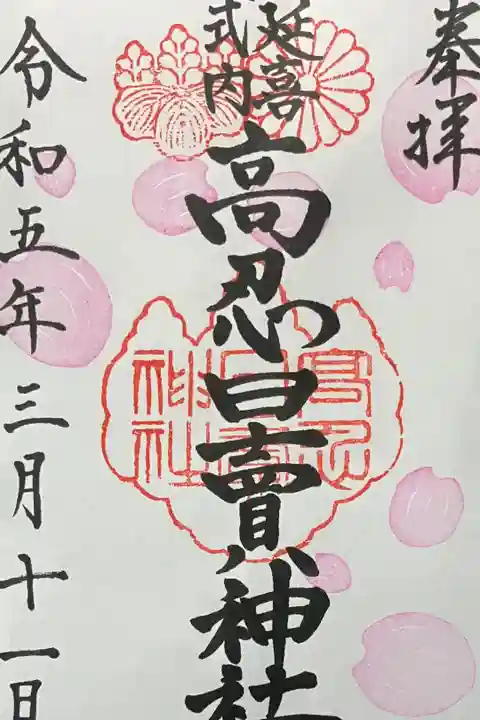 奉拝
延喜
式内
高忍日賣神社
令和五年三月十一日
高忍日賣神社